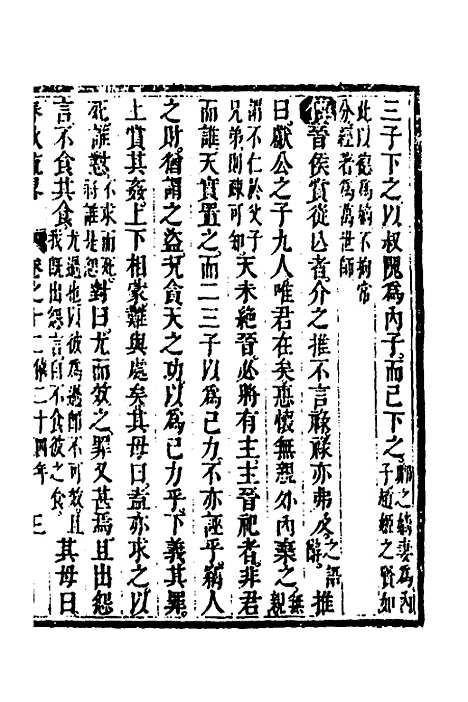 三子下之以叔隗爲內子而已下之卿之嫡妻爲內子趙姬之賢如
此以德爲嫡不拘常分經著爲萬世師
傳晉侯賞從亡者介之推不言祿祿亦弗及之語辭推
曰獻公之子九人唯君在矣惠懷無親外內棄之無親
謂不仁於父子兄弟則疎可知天未絶晉必將有主主晉祀者非君
而誰天實置之而二三子以爲己力不亦誣乎竊人
之財猶謂之盜况貪天之功以爲己力乎下義其罪
上賞其姦上下相蒙難與處矣其母曰盍亦求之以
死誰懟不求而死將誰是怨對曰尤而效之罪又甚焉且出怨
言不食其食尤過也以彼爲過即不可效且我既出怨言自不食彼之食其母曰
卷之十二僖二十四年 三